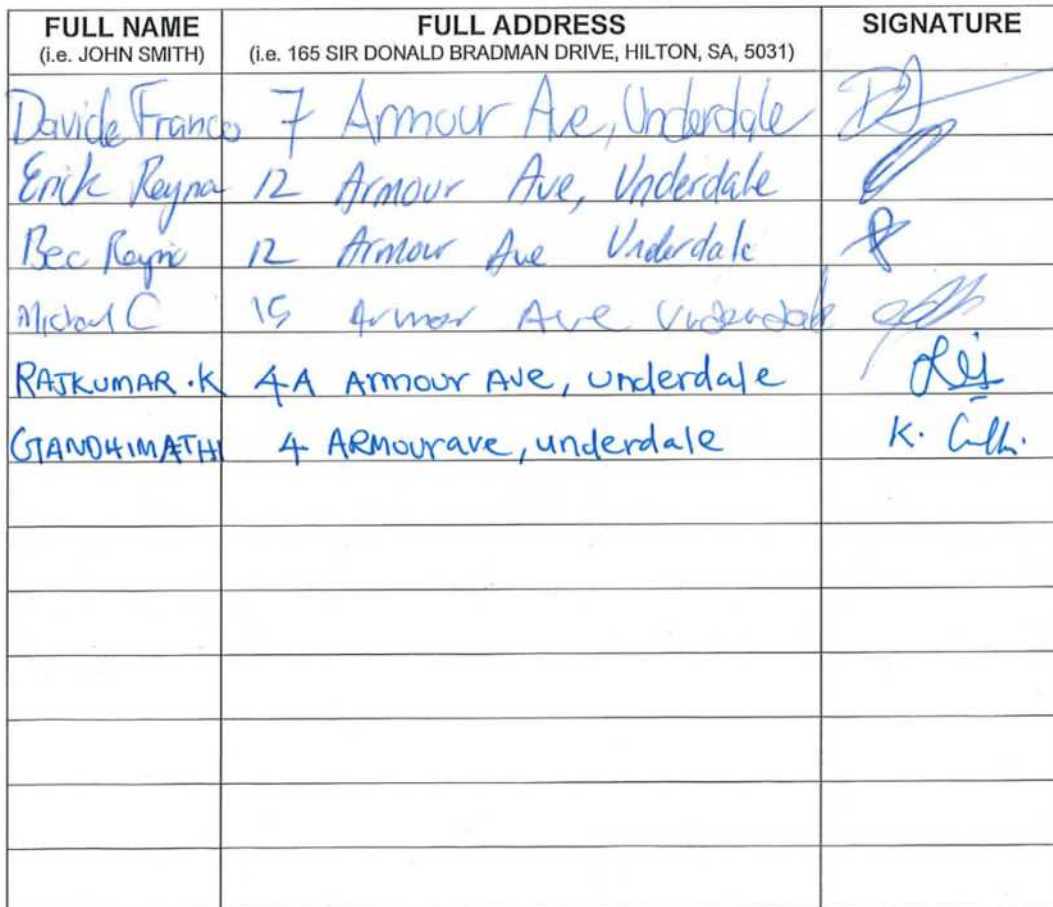 FULL NAME FULL ADDRESS SIGNATURE
(i.e. JOHN SMITH) (i.e. 165 SIR DONALD BRADMAN DRIVE, HILTON, SA, 5031)
Davide Franco 7 Armour Ave, Underdale
Erick Reyna 12 Armour Ave, Underdale
Bec 12 Armour Ave Underdale
C 15 Armor Ave Underdale
RAJKUMAR.K 4A Armour Ave, underdale
GANDHIMATHI 4 ARMourave, underdale K.